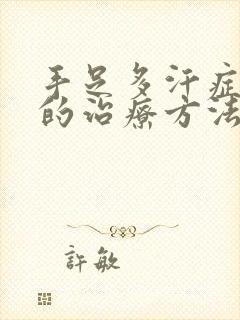 手足多汗症
的治療方法
許敏